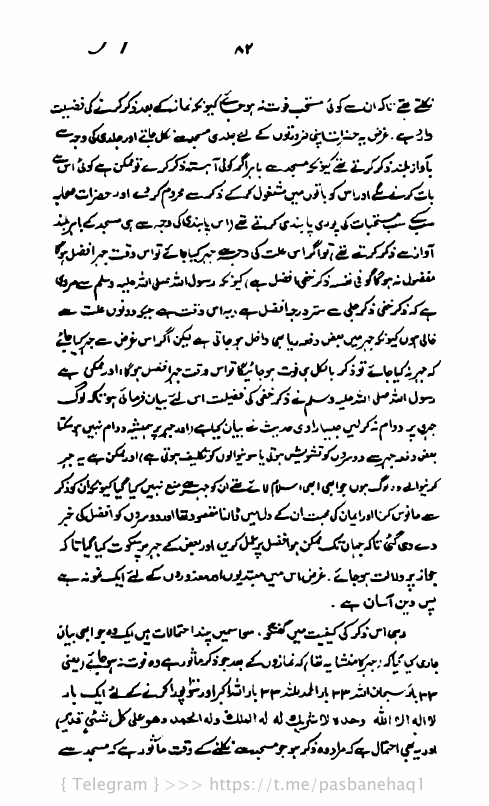 ۸۲
نکلتے تھے تاکہ ان سے کوئی مستحب فوت نہ ہو جائے کیونکہ نماز کے بعد ذکر کرنے کی فضیلت
وارد ہے۔ غرض یہ حضرات اپنی ضرورتوں کے لئے جلدی مسجد سے نکل جاتے اور جلدی کی وجہ سے
بآواز بلند ذکر کرتے تھے کیونکہ مسجد سے باہر اگر کوئی آہستہ ذکر کرے تو ممکن ہے کوئی اس سے
بات کرنے لگے اور اس کو باتوں میں مشغول کر کے ذکر سے محروم کر دے اور حضرات صحابہ
سب مستحبات کی پوری پابندی کرتے تھے (اس پابندی کی وجہ سے ہی مسجد کے باہر بلند
آواز سے ذکر کرتے تھے) تو اگر اس علت کی وجہ سے جہر کیا جائے تو اس وقت جہر افضل ہوگا
مفضول نہ ہوگا گو فی نفسہ ذکر خفی افضل ہے، کیونکہ رسول اللہ صلی اللہ علیہ وسلم سے مروی
ہے کہ ذکر خفی ذکر جلی سے ستر درجہ افضل ہے، یہ اس وقت ہے جبکہ دونوں علت سے
خالی ہوں کیونکہ جہر میں بعض دفعہ ریا بھی داخل ہو جاتی ہے لیکن اگر اس غرض سے جہر کیا جائے
کہ جہر نہ کیا جائے تو ذکر بالکل ہی فوت ہو جائیگا تو اس وقت جہر افضل ہوگا، اور ممکن ہے
رسول اللہ صلی اللہ علیہ وسلم نے ذکر خفی کی فضیلت اس لئے بیان فرمائی ہو تاکہ لوگ
جہر پر دوام نہ کر لیں جیسا راوی حدیث نے بیان کیا ہے (اور جہر پر ہمیشہ دوام نہیں ہو سکتا
بعض دفعہ جہر سے دوسروں کو تشویش ہوتی یا سونیوالوں کو تکلیف ہوتی ہے) اور ممکن ہے یہ جہر
کرنیوالے وہ لوگ ہوں جو ابھی ابھی اسلام لائے تھے ان کو جہر سے منع نہیں کیا گیا کیونکہ ان کو ذکر
سے مانوس کرنا اور ایمان کی محبت ان کے دل میں ڈالنا مقصود تھا اور دوسروں کو افضل کی خبر
دے دی گئی تاکہ جہاں تک ممکن ہو افضل پر عمل کریں اور بعض کے جہر پر سکوت کیا گیا تاکہ
جواز پر دلالت ہو جائے۔ غرض اس میں مبتدیوں اور معذوروں کے لئے ایک نمونہ ہے
پس دین آسان ہے۔
رہی اس ذکر کی کیفیت میں گفتگو، سو اس میں چند احتمالات ہیں ایک وہ جو ابھی بیان
کیا گیا کہ (جہر کا منشا یہ تھا) کہ نمازوں کے بعد جو ذکر ماثور ہے وہ فوت نہ ہو جائے (یعنی
۳۳ بار سبحان اللہ ۳۳ بار الحمد للہ ۳۳ بار اللہ اکبر اور سو پورا کرنے کے لئے ایک بار
لا الہ الا اللہ وحدہ لا شریک لہ لہ الملک ولہ الحمد وھو علی کل شئی قدیر)
اور یہ بھی احتمال ہے کہ مراد وہ ذکر ہو جو مسجد سے نکلنے کے وقت ماثور ہے کہ مسجد سے
{ Telegram } >>> https://t.me/pasbanehaq1